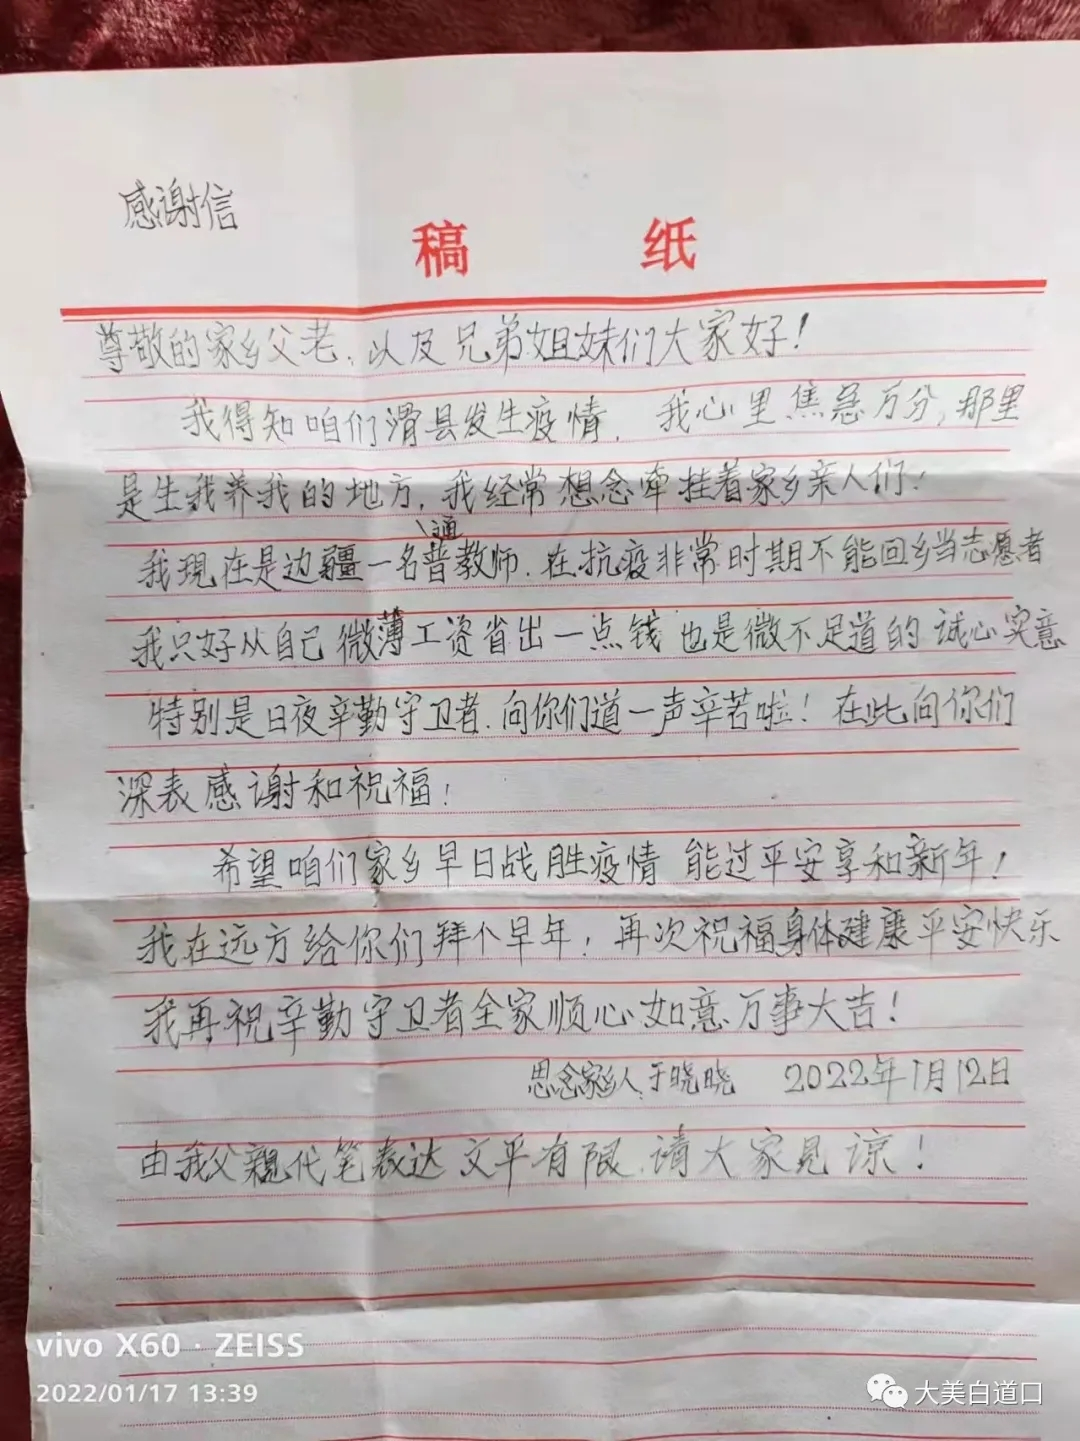 感谢信
稿 纸
尊敬的家乡父老、以及兄弟姐妹们大家好！
我得知咱们滑县发生疫情，我心里焦急万分，那里
是生我养我的地方，我经常想念牵挂着家乡亲人们！
我现在是边疆一名普通教师．在抗疫非常时期不能回乡当志愿者
我只好从自己微薄工资省出一点钱也是微不足道的诚心实意
特别是日夜辛勤守卫者．向你们道一声辛苦啦！在此向你们
深表感谢和祝福！
希望咱们家乡早日战胜疫情能过平安享和新年！
我在远方给你们拜个早年！再次祝福身体建康平安快乐
我再祝辛勤守卫者全家顺心如意万事大吉！
思念家乡人于晓晓 2022年1月12日
由我父親代笔表达文平有限．请大家見谅！
vivo X60 · ZEISS
2022/01/17 13:39
大美白道口